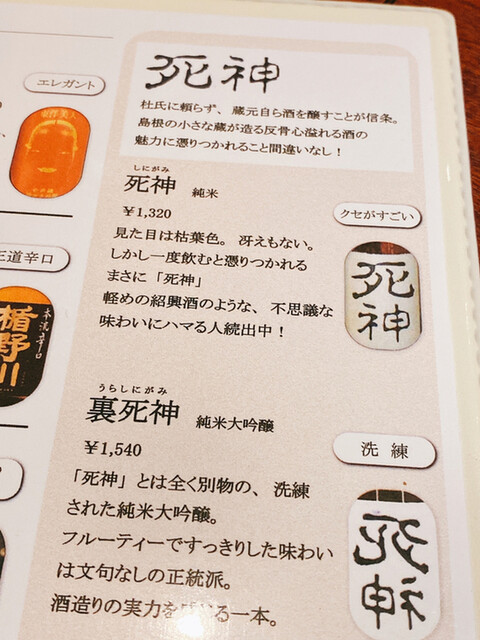 死神
杜氏に頼らず、蔵元自ら酒を醸すことが信条。
島根の小さな蔵が造る反骨心溢れる酒の
魅力に憑りつかれること間違いなし！
エレガント
しにがみ
死神 純米
¥1,320
クセがすごい
見た目は枯葉色。冴えもない。
しかし一度飲むと憑りつかれる
まさに「死神」
軽めの紹興酒のような、不思議な
味わいにハマる人続出中！
死神
道辛口
楯野川
うらしにがみ
裏死神 純米大吟醸
¥1,540
洗練
「死神」とは全く別物の、洗練
された純米大吟醸。
フルーティーですっきりした味わい
は文句なしの正統派。
酒造りの実力を じる一本。
死神